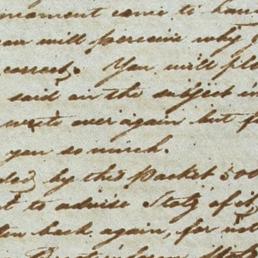 moment came to hand
will perceive why I
correct. You will ple
said on the subject in
write over again but f
you so much.
by this Packet 500
to advise Stolz of it
back again, for not